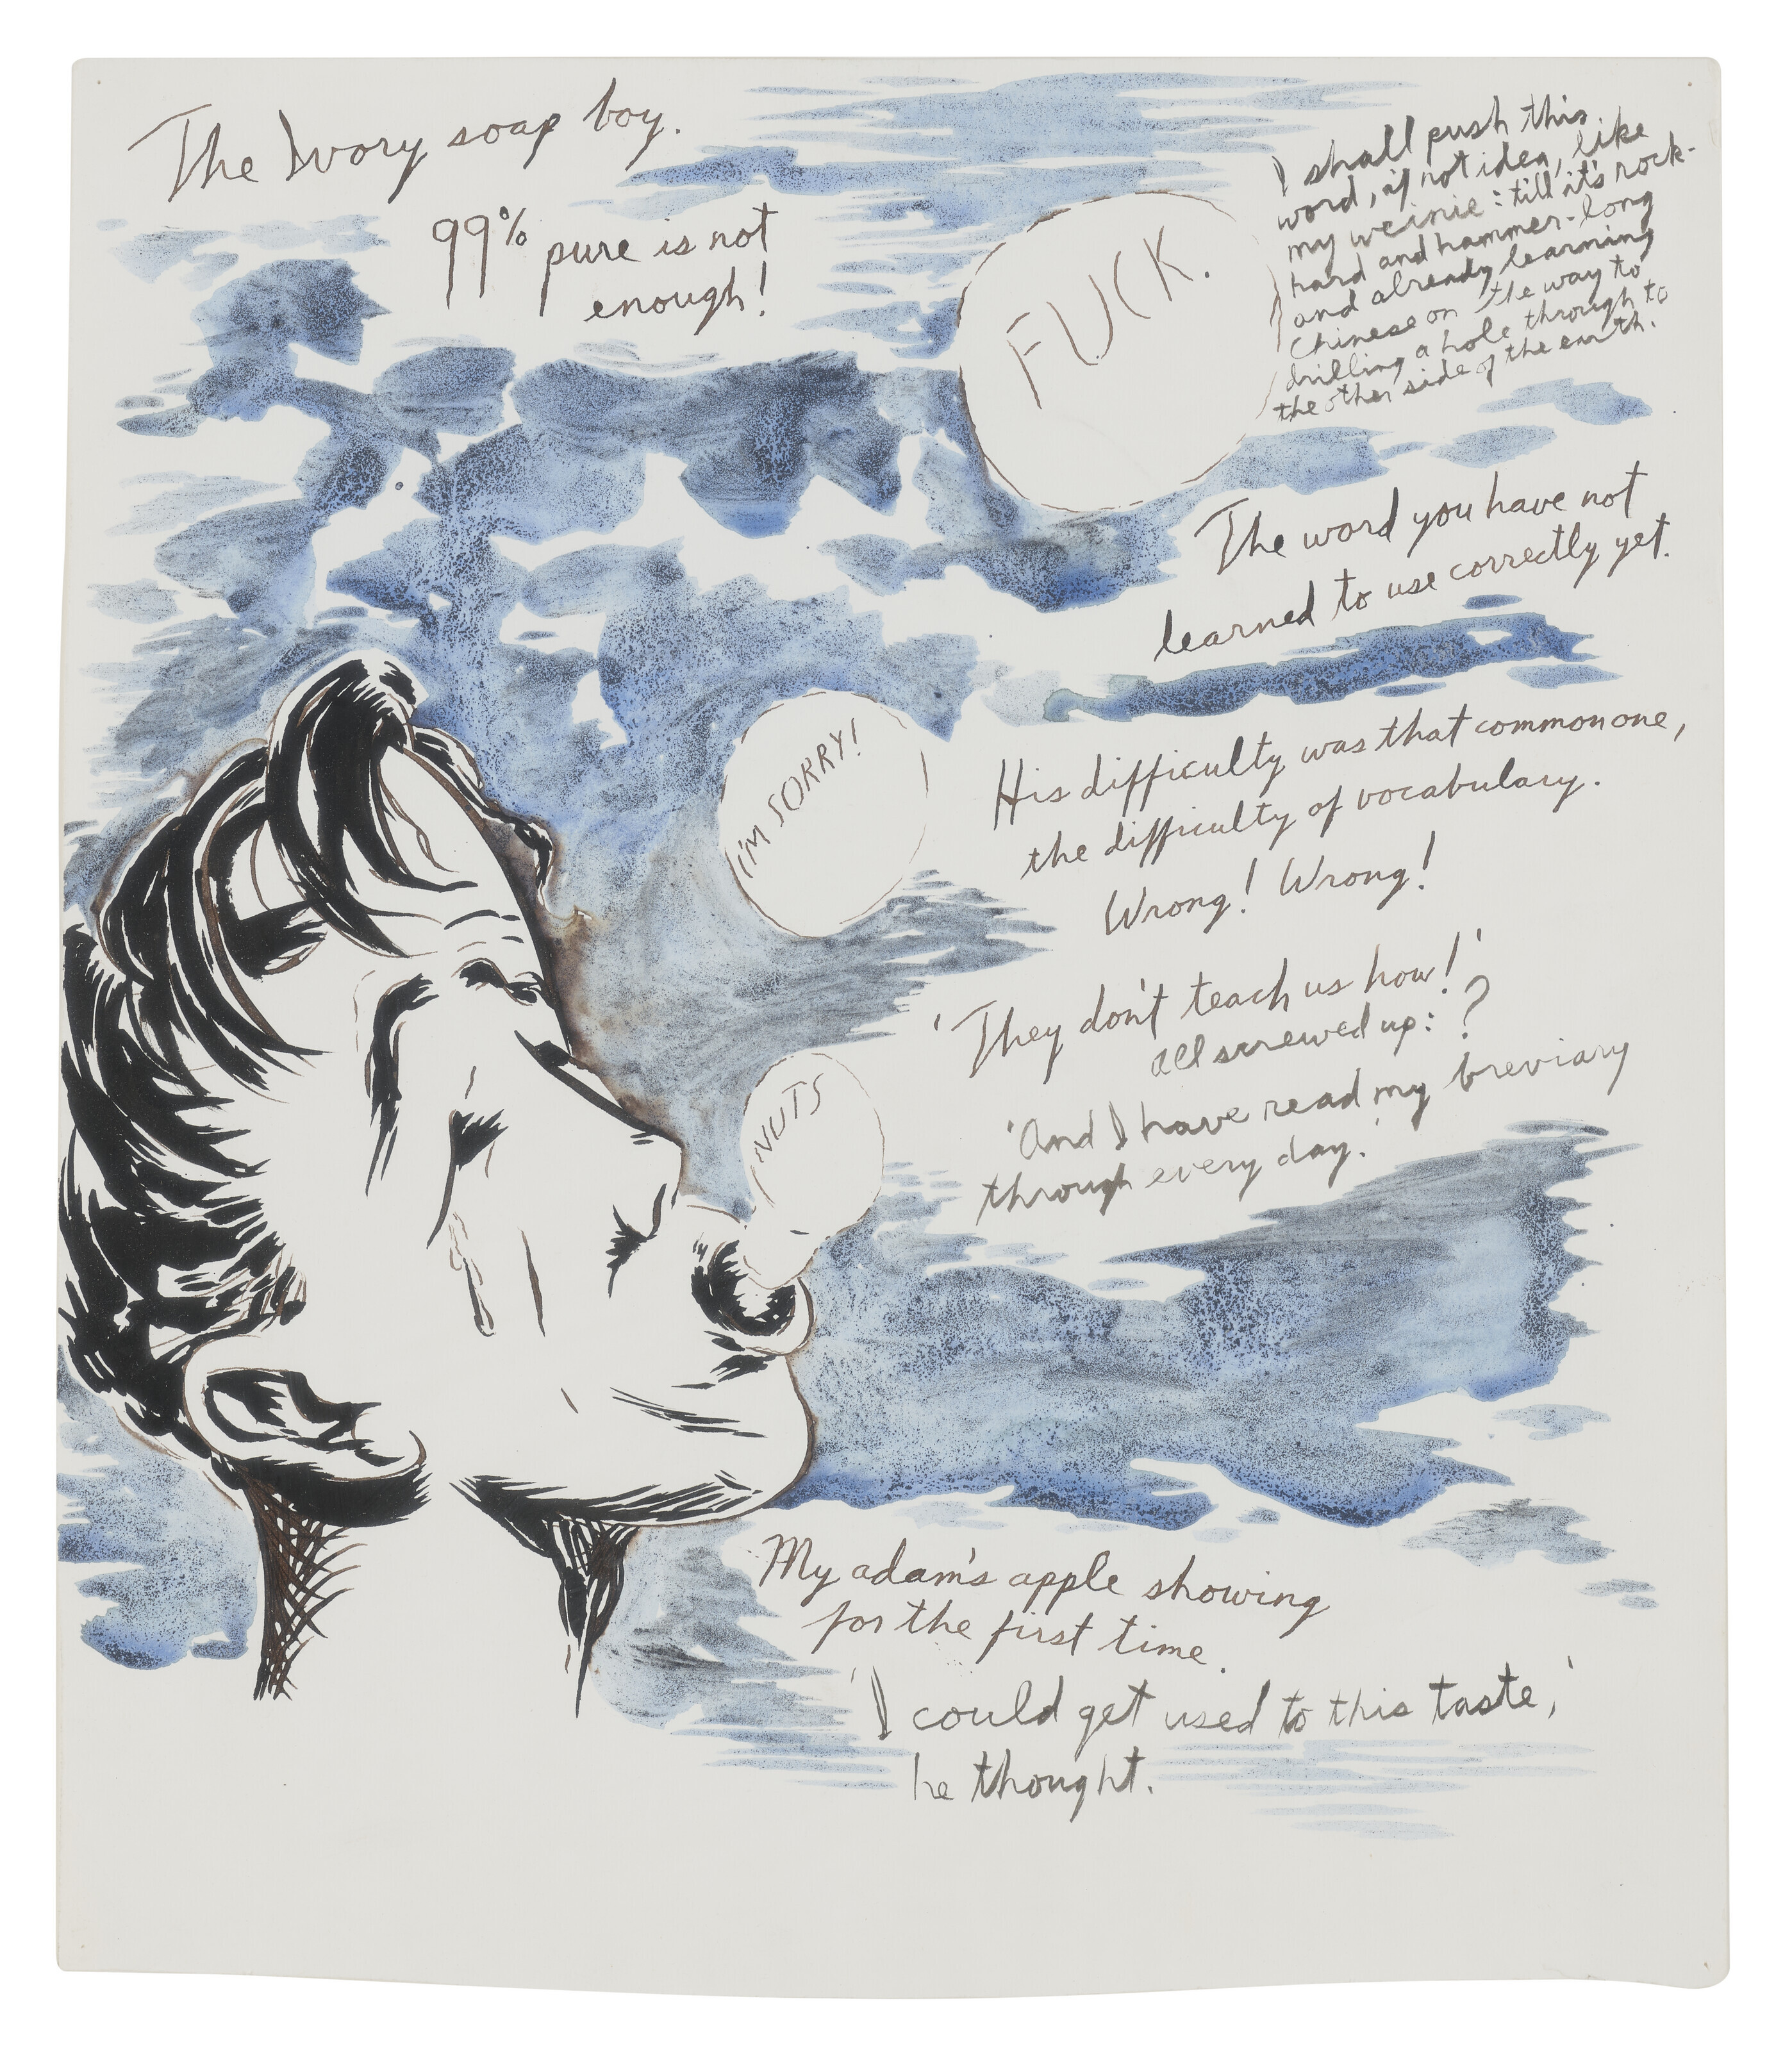 The Ivory soap boy.
99% pure is not
enough!
I shall push this
word, if not idea, like
my weinie: till it's rock-
hard and hammer-long
and already learning
Chinese on the way to
drilling a hole through to
the other side of the earth.
FUCK.
The word you have not
learned to use correctly yet.
I'M SORRY!
His difficulty was that common one,
the difficulty of vocabulary.
Wrong! Wrong!
'They don't teach us how!'
all screwed up: ?
NUTS
'And I have read my breviary
through every day.'
My adam's apple showing
for the first time.
'I could get used to this taste,'
he thought.